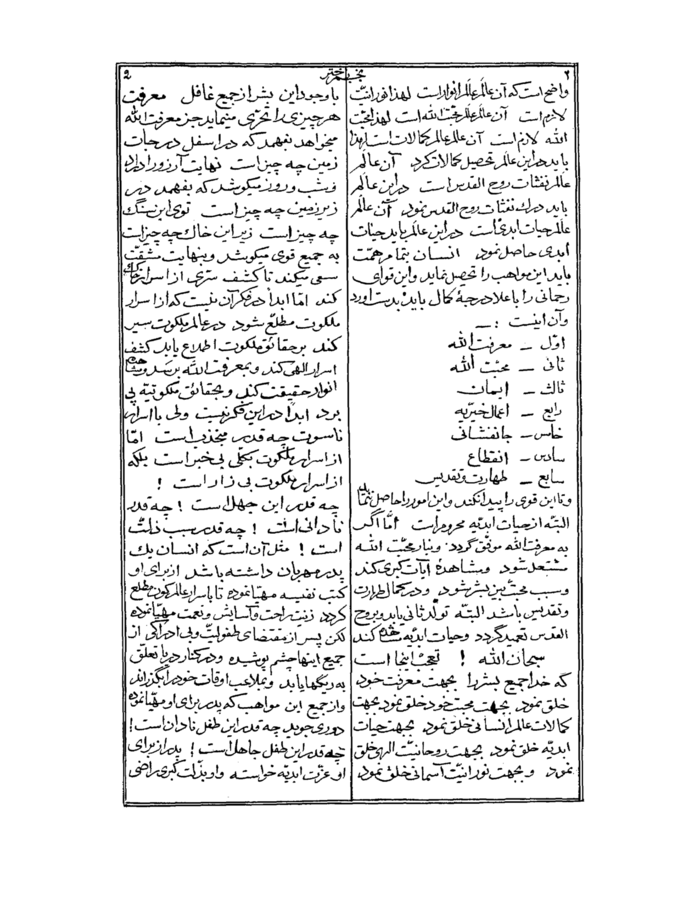 ۲
نجم باختر
2
واضح است که آن عالم عالم انوار است لهذا نورانیّت
لازم است آن عالم عالم محبّت الله است لهذا محبّت
الله لازم است آن عالم عالم کمالات است لهذا
باید در این عالم تحصیل کمالات کرد آن عالم
عالم نفثات روح القدس است در این عالم
باید درک نفثات روح القدس نمود آن عالم
عالم حیات ابدی است در این عالم باید حیات
ابدی حاصل نمود انسان بتمام همّت
باید این مواهب را تحصیل نماید و این قوای
رحمانی را باعلا درجهٔ کمال باید بدست آورد
و آن اینست :ــ
اوّل ــ معرفت الله
ثانی ــ محبّت الله
ثالث ــ ایمان
رابع ــ اعمال خیریّه
خامس ــ جانفشانی
سادس ــ انقطاع
سابع ــ طهارت و تقدیس
و تا این قوی را پیدا نکند و این امور را حاصل ننماید
البتّه از حیات ابدیّه محروم است امّا اگر
به معرفت الله موفّق گردد و بنار محبّت الله
مشتعل شود و مشاهدهٔ آیات کبری کند
و سبب محبّت بین بشر شود و در کمال طهارت
و تقدیس باشد البتّه تولّد ثانی یابد و بروح
القدس تعمید گردد و حیات ابدیّه مشاهده کند
سبحان الله ! تعجّب اینجا است
که خدا جمیع بشر را بجهت معرفت خود
خلق نمود بجهت محبّت خود خلق نمود بجهت
کمالات عالم انسانی خلق نمود بجهت حیات
ابدیّه خلق نمود بجهت روحانیّت الهی خلق
نمود و بجهت نورانیّت آسمانی خلق نمود
با وجود این بشر از جمیع غافل معرفت
هر چیزی را تحرّی مینماید جز معرفت الله
میخواهد بفهمد که در اسفل درجات
زمین چه چیز است نهایت آرزو را دارد
و شب و روز میکوشد که بفهمد در
زیر زمین چه چیز است توی این سنگ
چه چیز است زیر این خاک چه چیز است
به جمیع قوی میکوشد و بنهایت مشقّت
سعی میکند تا کشف سرّی از اسرار خاک
کند امّا ابداً در فکر آن نیست که از اسرار
ملکوت مطلّع شود در عالم ملکوت سیر
کند بر حقائق ملکوت اطلاع یابد کشف
اسرار الهی کند و بمعرفت الله برسد و مشاهده
انوار حقیقت کند و بحقائق ملکوتیّه پی
برد ابداً در این فکر نیست ولی باسرار
ناسوت چه قدر منجذب است امّا
از اسرار ملکوت بکلّی بی خبر است بلکه
از اسرار ملکوت بیزار است !
چه قدر این جهل است ! چه قدر
نادانی است ! چه قدر سبب ذلّت
است ! مثل آن است که انسان یک
پدر مهربان داشته باشد از برای او
کتب نفیسه مهیّا نموده تا باسرار عالم کون مطلع
گردد زینت راحت و آسایش و نعمت مهیّا نموده
لکن پسر از مقتضای طفولیّت و بی ادراکی از
جمیع اینها چشم پوشیده و در کنار دریا تعلق
به ریگها یابد و بملاعب اوقات خود را بگذراند
و از جمیع این مواهب که پدر برای او مهیّا نموده
دوری جوید چه قدر این طفل نادان است !
چه قدر این طفل جاهل است ! پدر از برای
او عزّت ابدیّه خواسته و او بذلّت کبری راضی